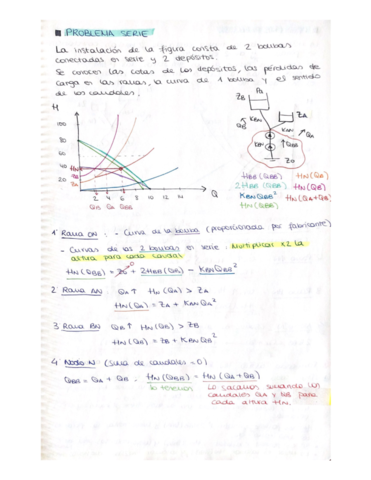 ■ PROBLEMA SERIE
La instalación de la figura consta de 2 bombas
conectadas en serie y 2 depósitos.
Se conocen las cotas de los depósitos, las pérdidas de
carga en las ramas, la curva de 1 bomba y el sentido
de los caudales.
H
100
80
60
40
20
HN
2 4 6 8 10 12 14
QA QB QBB
Q
PB
ZB
ZA
QB
KBN
KAN
QA
Z0
HBB (QBB) HN (QA)
2HBB (QBB) HN (QB)
KBNQBB² HN (QA+QB)
HN (QBB)
1 Rama ON : - Curva de la bomba (proporcionada por fabricante)
- Curvas de las 2 bombas en serie : Multiplicar x2 la
altura para cada caudal
HN (QBB) = Z0 + 2HBB (QBB) - KBNQBB²
2 Rama AN QA↑ HN (QA) > ZA
HN (QA) = ZA + KANQA²
3 Rama BN QB↑ HN (QB) > ZB
HN (QB) = ZB + KBNQB²
4 Nodo N (Suma de caudales = 0)
QBB = QA + QB HN (QBB) = HN (QA+QB)
lo tenemos
Lo sacamos sumando los
caudales QA y QB para
cada altura HN.